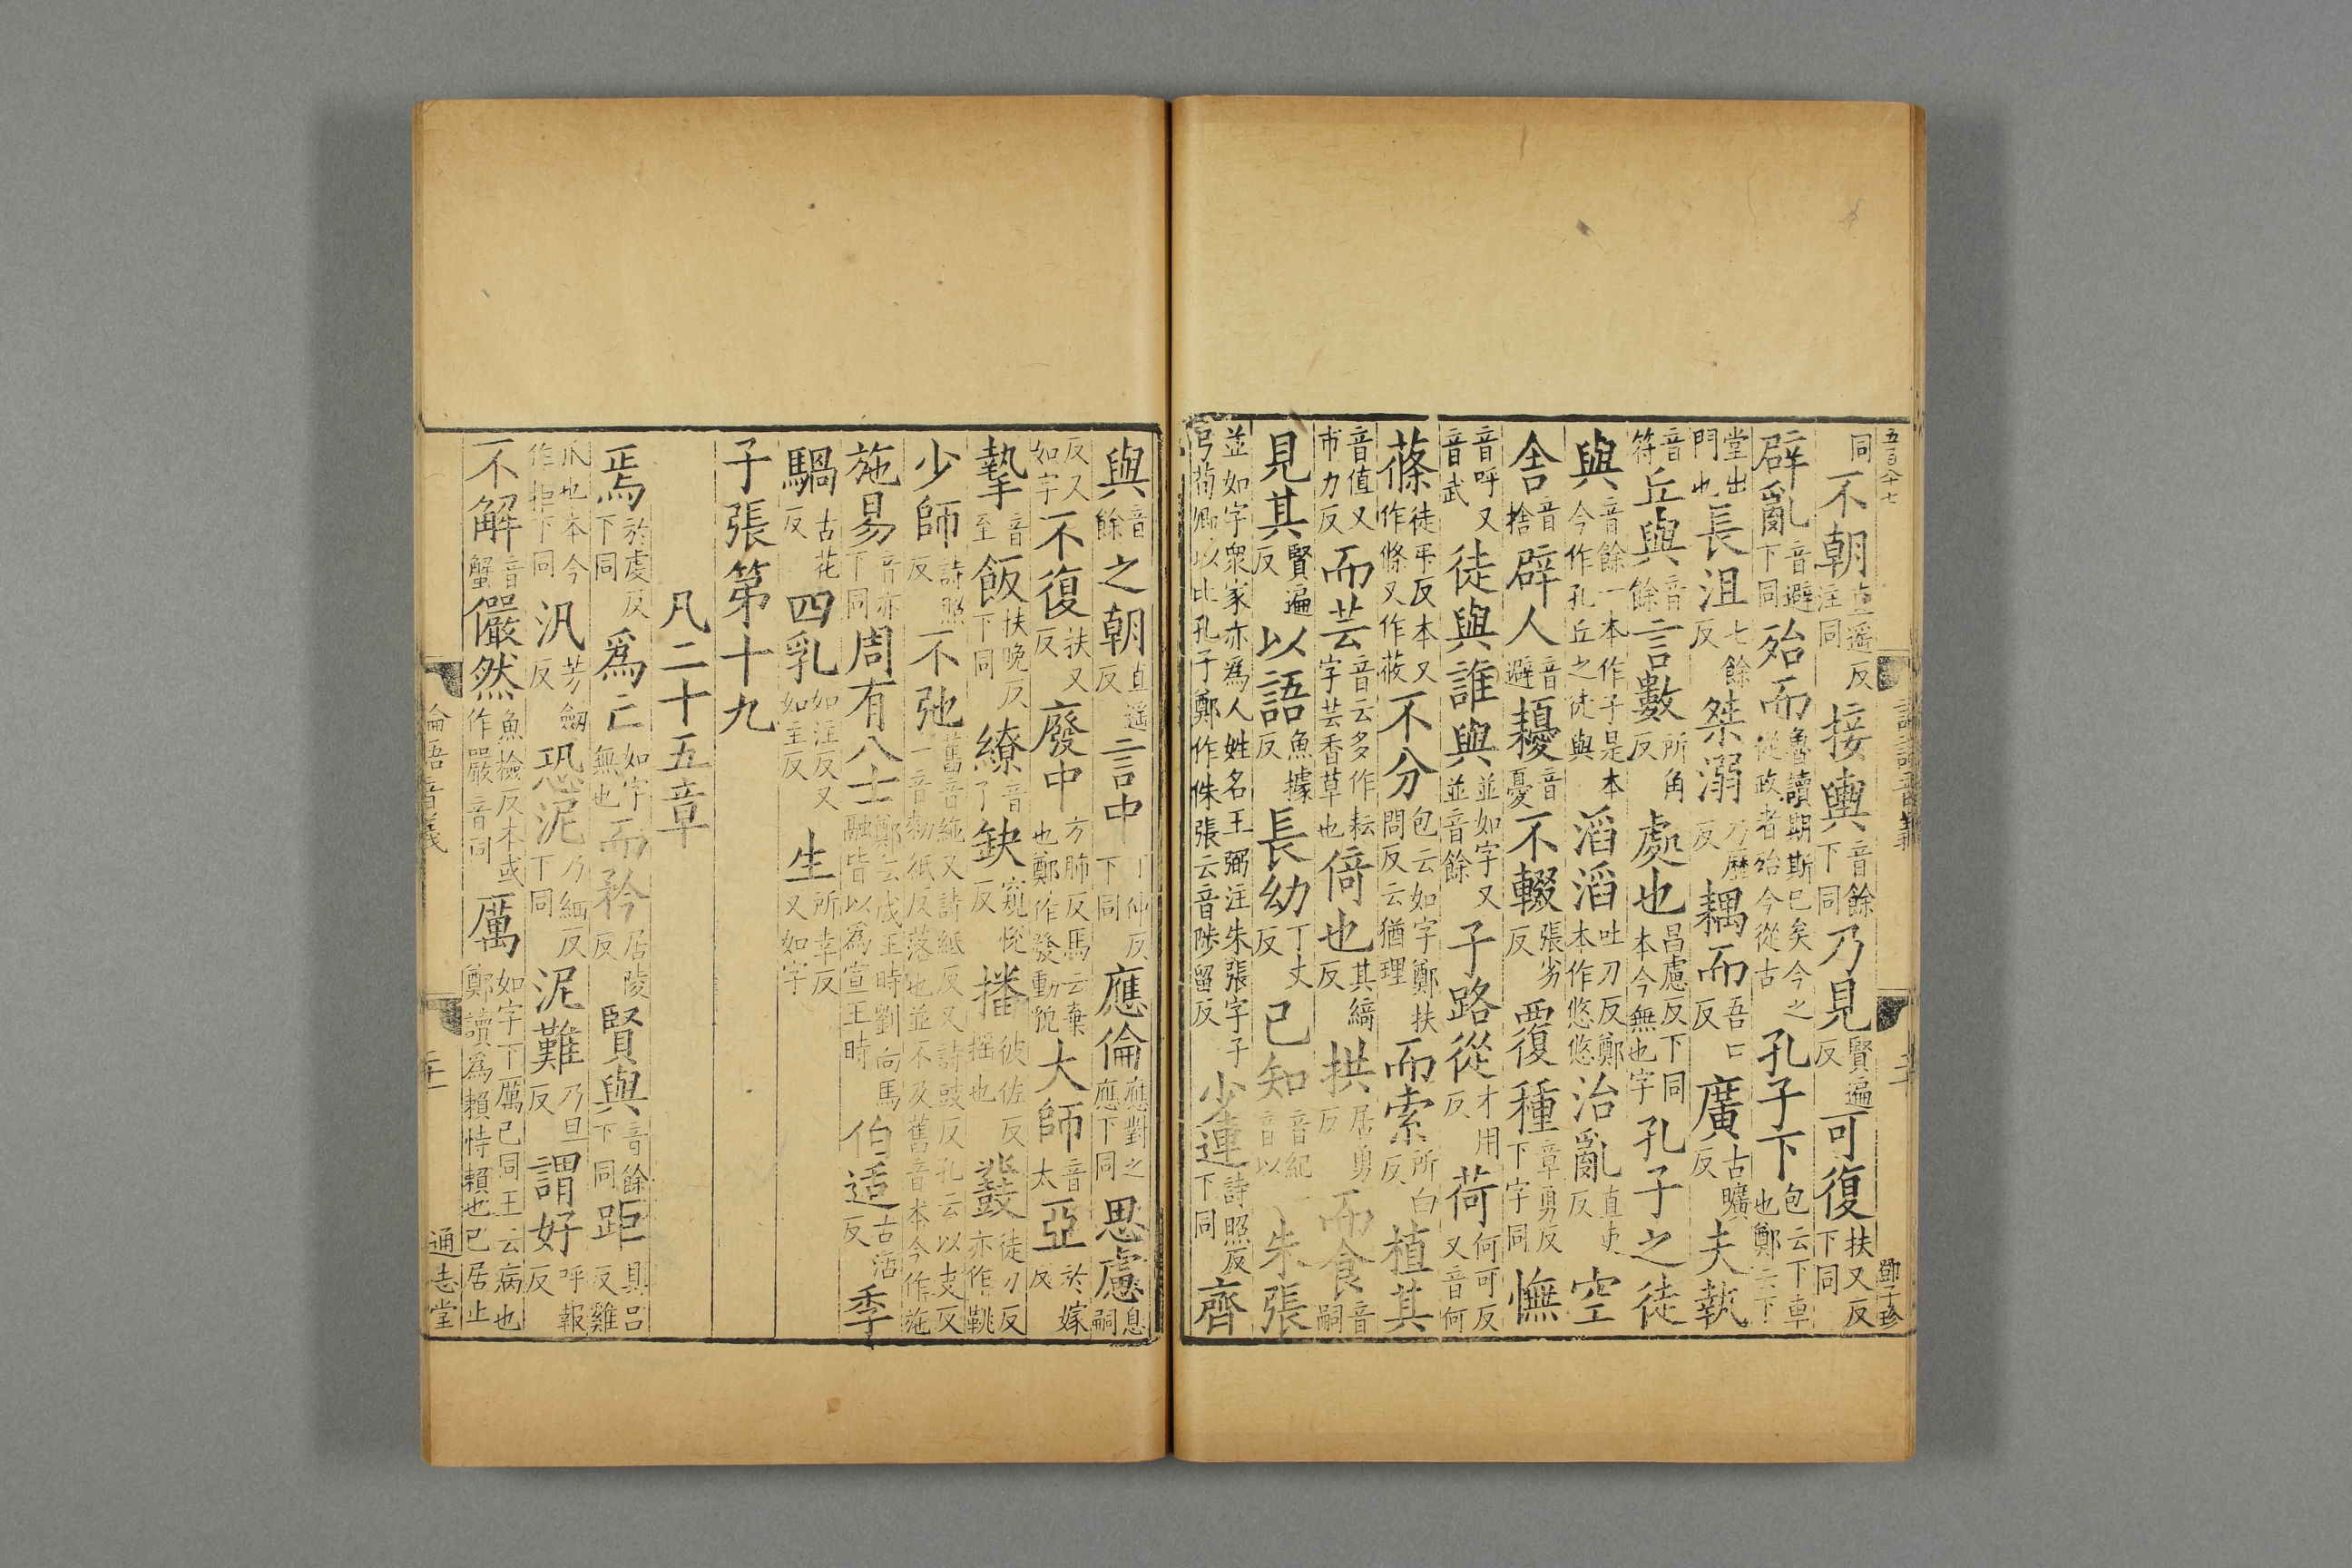 五百八十七
同不朝直遥反注同接輿音餘下同乃見賢遍反可復扶又反下同
辟亂音避下同殆而魯讀期斯已矣今之從政者殆今從古孔子下包云下車也鄭云下
堂出門也長沮七餘反桀溺乃歷反耦而吾口反廣古曠反夫執
音符丘與音餘言數所角反處也昌慮反下同本今無也字孔子之徒
與音餘一本作子是本今作孔丘之徒與滔滔吐刀反鄭本作悠悠治亂直吏反空
舍音捨辟人音避耰音憂不輟張劣反覆種章勇反下字同憮
音呼又音武徒與誰與並如字又並音餘子路從才用反荷何可反又音何
蓧徒弔反本又作條又作莜不分包云如字鄭扶問反云猶理而索所白反植其
音值又市力反而芸音云多作耘字芸香草也倚也其綺反拱居勇反而食音嗣
見其賢遍反以語魚據反長幼丁丈反已知音紀一音以朱張
並如字衆家亦爲人姓名王弼注朱張字子弓荀卿以比孔子鄭作侏張云音陟留反少連詩照反下同齊
與音餘之朝直遥反言中丁仲反下同應倫應對之應下同思慮息嗣
反又如字不復扶又反廢中方肺反馬云棄也鄭作發動貌大師音太亞於嫁反
摯音至飯扶晚反下同繚音了缺窺悅反播彼佐反摇也鼗徒刀反亦作鞉
少師詩照反不弛舊音絁又詩紙反又詩豉反孔云以支反一音勑紙反落也並不及舊音本今作施
施易音亦下同周有八士鄭云成王時劉向馬融皆以為宣王時伯适古活反季
騧古花反四乳如注反又如主反生所幸反又如字
子張第十九
凡二十五章
焉於虔反下同爲亡如字無也而矜居陵反賢與音餘下同距具呂反雞
爪也本今作拒下同汎芳劔反恐泥乃細反下同泥難乃旦反謂好呼報反
不解音蟹儼然魚檢反本或作嚴音同厲如字下厲已同王云病也鄭讀爲賴恃賴也已居止
論語音義
通志堂